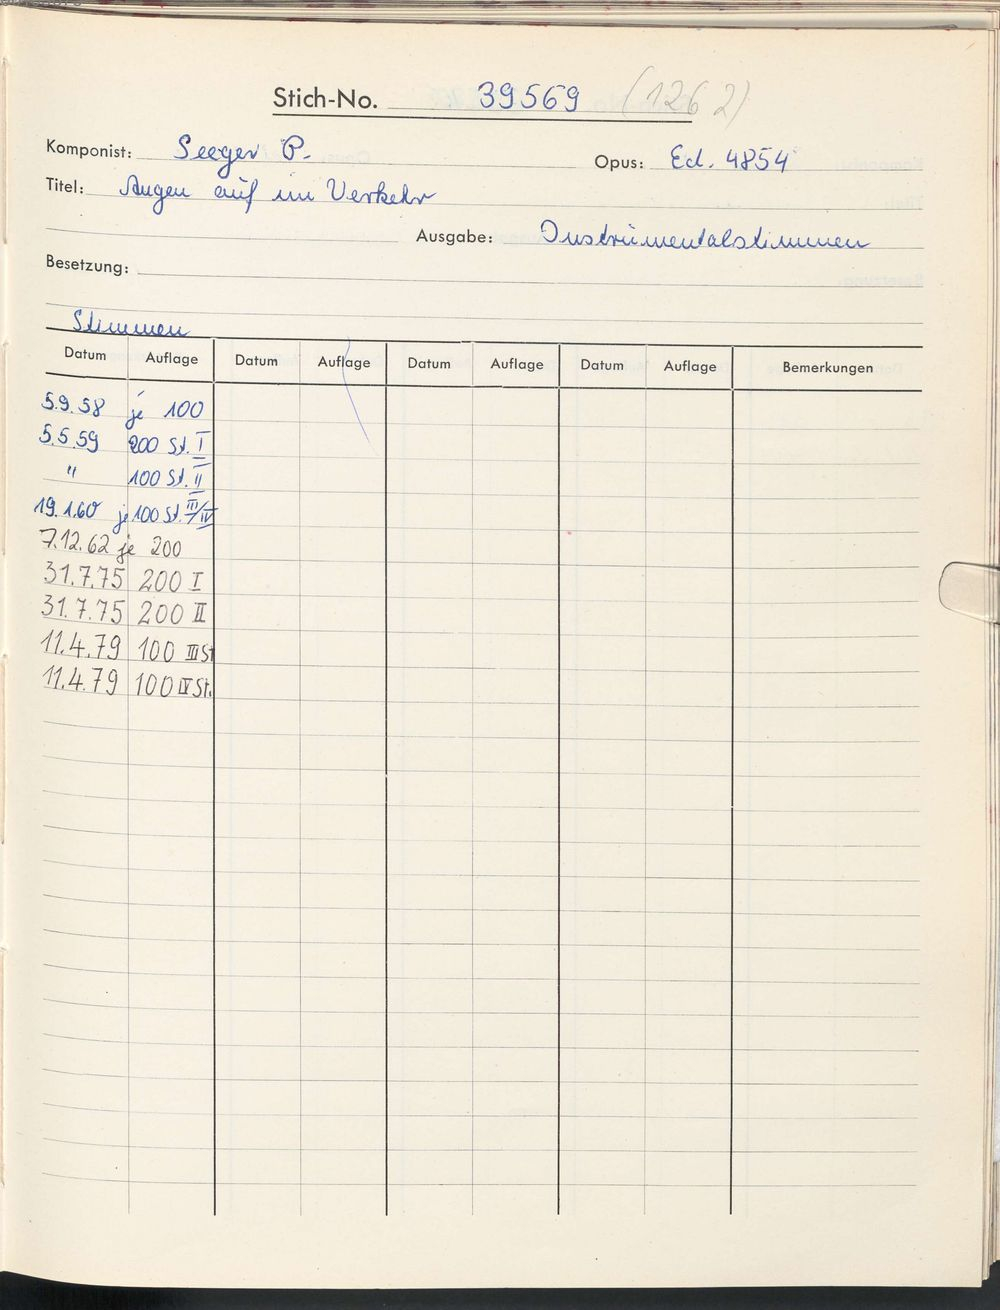 Stich-No. 39569 (1262)
Komponist: Seeger P. Opus: Ed. 4854
Titel: Augen auf im Verkehr
Ausgabe: Instrumentalstimmen
Besetzung:
Stimmen
Datum Auflage Datum Auflage Datum Auflage Datum Auflage Bemerkungen
5.9.58 je 100
5.5.59 200 St. I
" 100 St. II
19.1.60 je 100 St. III/IV
7.12.62 je 200
31.7.75 200 I
31.7.75 200 II
11.4.79 100 III St
11.4.79 100 IV St.